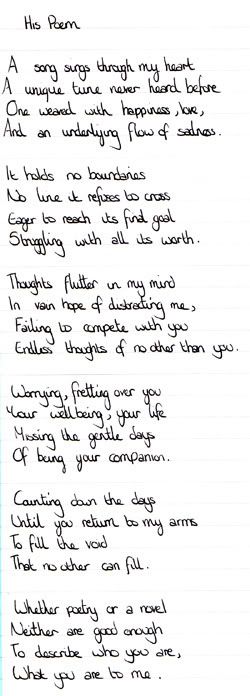 His Poem
A song sings through my heart
A unique tune never heard before
One weaved with happiness, love,
And an underlying flow of sadness.
It holds no boundaries
No line it refuses to cross
Eager to reach its final goal
Struggling with all its worth.
Thoughts flutter in my mind
In vain hope of distracting me,
Failing to compete with you
Endless thoughts of no other than you.
Worrying, fretting over you
Your wellbeing, your life
Missing the gentle days
Of being your companion.
Counting down the days
Until you return to my arms
To fill the void
That no other can fill.
Whether poetry or a novel
Neither are good enough
To describe who you are,
What you are to me.